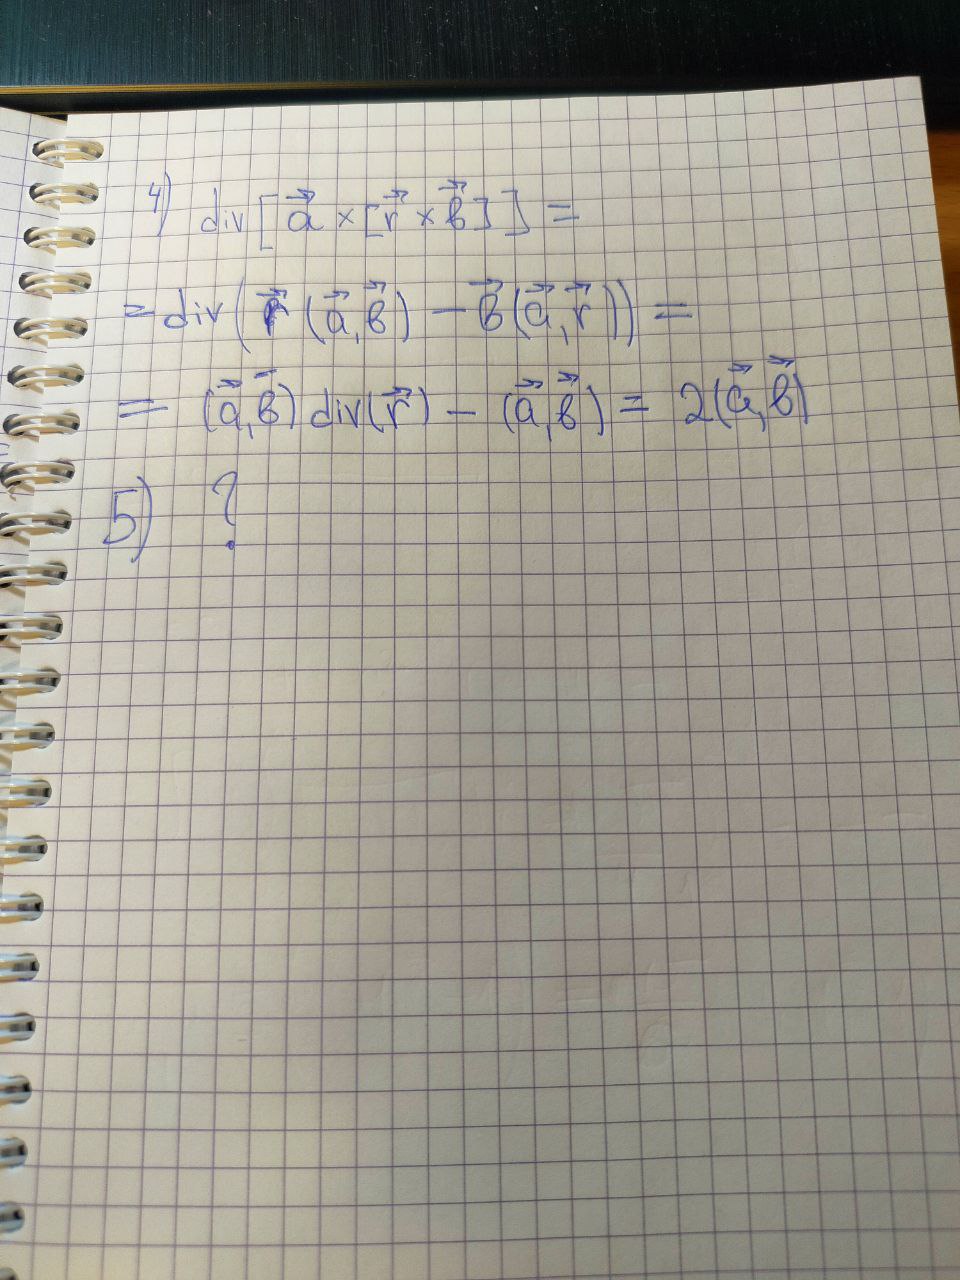 4) div[a⃗ × [r⃗ × b⃗]] =
= div(r⃗(a⃗,b⃗) − b⃗(a⃗,r⃗)) =
= (a⃗,b⃗) div(r⃗) − (a⃗,b⃗) = 2(a⃗,b⃗)
5) ?